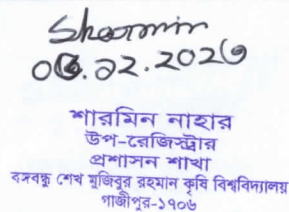 Sharmin
০৬.১২.২০২৩
শারমিন নাহার
উপ-রেজিস্ট্রার
প্রশাসন শাখা
বঙ্গবন্ধু শেখ মুজিবুর রহমান কৃষি বিশ্ববিদ্যালয়
গাজীপুর-১৭০৬